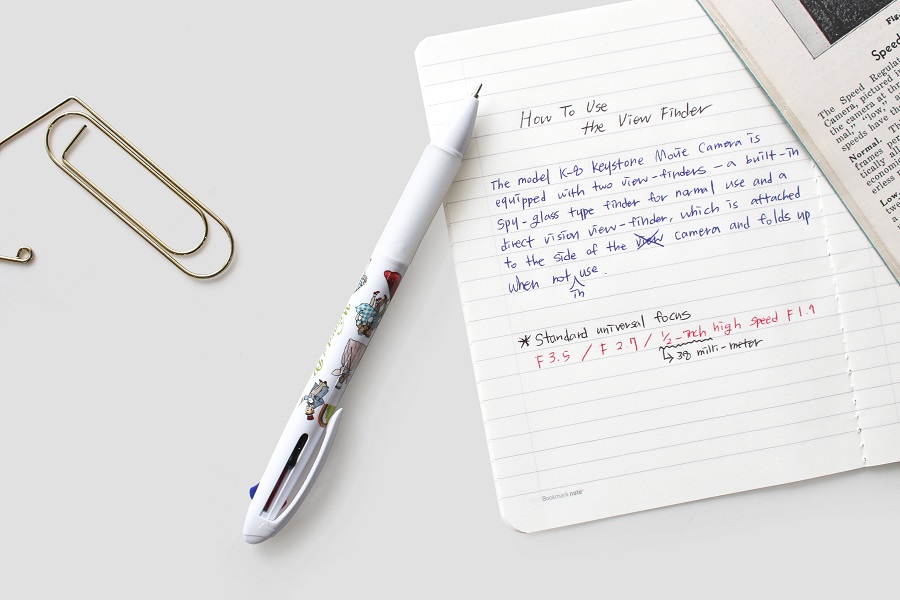 How To Use
the View Finder
The model K-8 Keystone Movie Camera is
equipped with two view-finders - a built-in
spy-glass type finder for normal use and a
direct vision view-finder, which is attached
to the side of the view camera and folds up
when not use.
in
* Standard universal focus
F 3.5 / F 2.7 / 1/2-inch high speed F 1.9
38 milli-meter
Bookmark note
Fig.
Speed
The Speed Regulat
Camera, pictured i
the camera at thr
mal," "low," a
speeds have th
Normal. Th
frames per
tically all
economic
erless n
Low.
twe
a